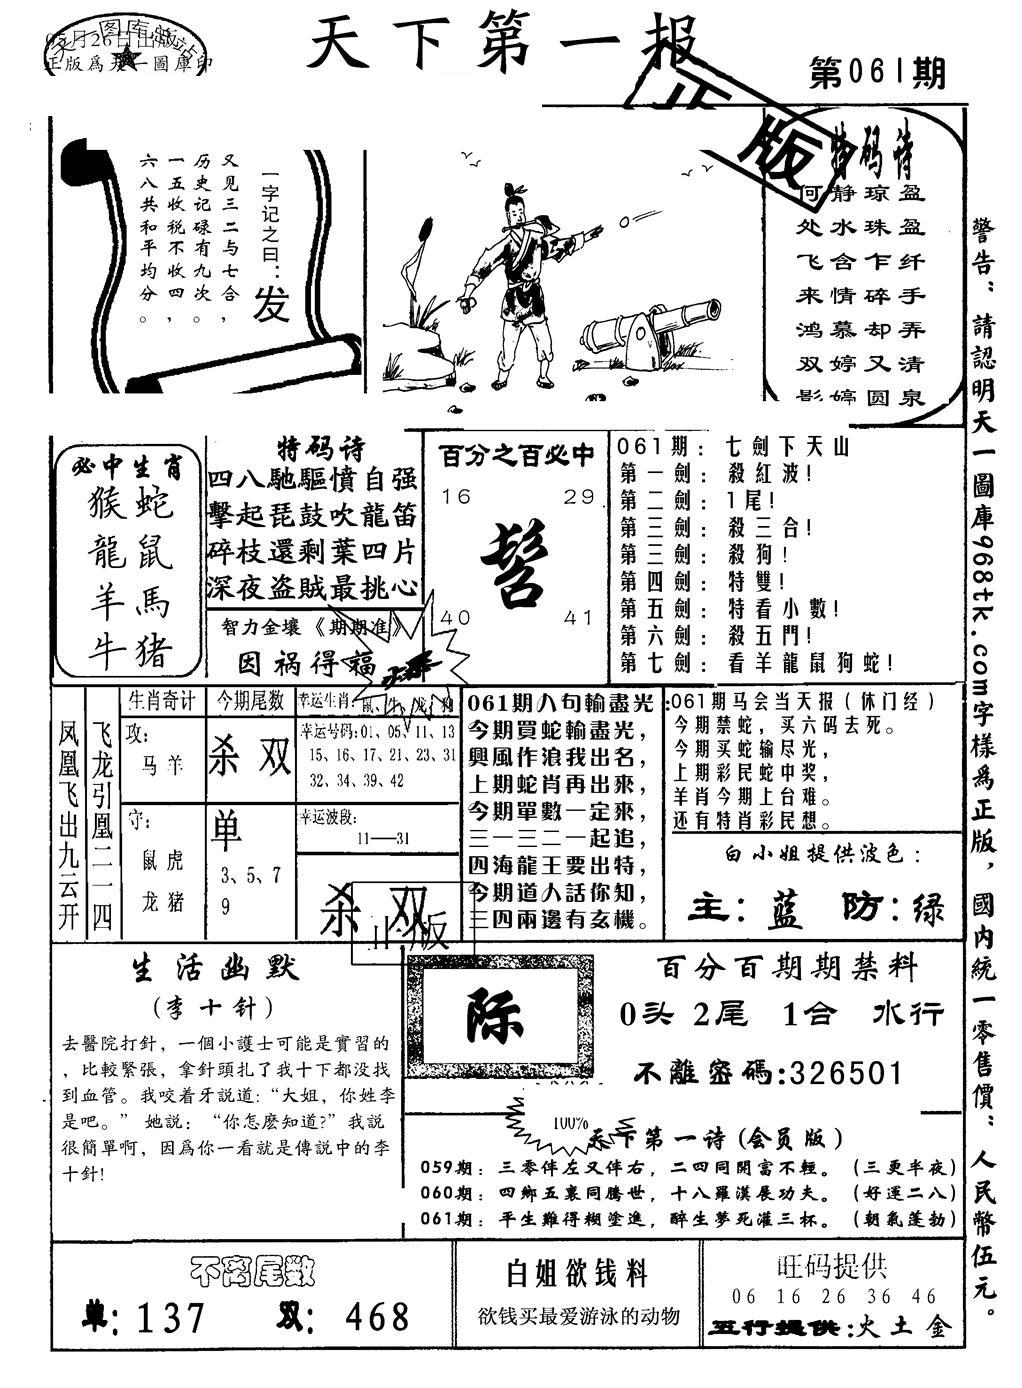 天下第一报
第061期
05月26日出版
正版爲天一圖庫印
天一图库激站
正版
一字记之曰：发
又见三二与七合，
历史记碌有九次。
一五收税不收四，
六八共和平均分。
特码诗
何静琼盈
处水珠盈
飞含乍纤
来情碎手
鸿慕却弄
双婷又清
影婷圆泉
警告：請認明天一圖庫968tk.com字樣爲正版，國内統一零售價：人民幣伍元。
必中生肖
猴蛇
龍鼠
羊馬
牛猪
特码诗
四八馳驅憤自强
擊起琵鼓吹龍笛
碎枝還剩葉四片
深夜盗賊最挑心
智力金壤《期期准》
因祸得福
百分之百必中
16 29
髻
40 41
061期：七劍下天山
第一劍：殺紅波！
第二劍：1尾！
第三劍：殺三合！
第三劍：殺狗！
第四劍：特雙！
第五劍：特看小數！
第六劍：殺五門！
第七劍：看羊龍鼠狗蛇！
飞龙引凰二一四
凤凰飞出九云开
生肖奇计
攻：
马羊
守：
鼠虎
龙猪
今期尾数
杀双
单
3、5、7
9
幸运生肖：鼠、牛、龙、狗
幸运号码：01、05、11、13
15、16、17、21、23、31
32、34、39、42
幸运波段：
11—31
杀双
正版
061期八句輸盡光：
今期買蛇輸盡光，
興風作浪我出名，
上期蛇肖再出來，
今期單數一定來，
三一三二一起追，
四海龍王要出特，
今期道人話你知，
三四兩邊有玄機。
061期马会当天报（休门经）
今期禁蛇，买六码去死。
今期买蛇输尽光，
上期彩民蛇中奖，
羊肖今期上台难。
还有特肖彩民想。
白小姐提供波色：
主：蓝 防：绿
生活幽默
(李十针)
去醫院打針，一個小護士可能是實習的
，比較緊張，拿針頭扎了我十下都没找
到血管。我咬着牙説道：“大姐，你姓李
是吧。” 她説：“你怎麽知道?”我説
很簡單啊，因爲你一看就是傳説中的李
十針!
际
百分百期期禁料
0头 2尾 1合 水行
不離密碼:326501
100%
天下第一诗(会员版)
059期：三零伴左又伴右，二四同開富不輕。（三更半夜）
060期：四鄉五裏同騰世，十八羅漢展功夫。（好運二八）
061期：平生難得糊塗進，醉生夢死灌三杯。（朝氣蓬勃）
不离尾数
单：137 双：468
白姐欲钱料
欲钱买最爱游泳的动物
旺码提供
06 16 26 36 46
五行提供：火土金